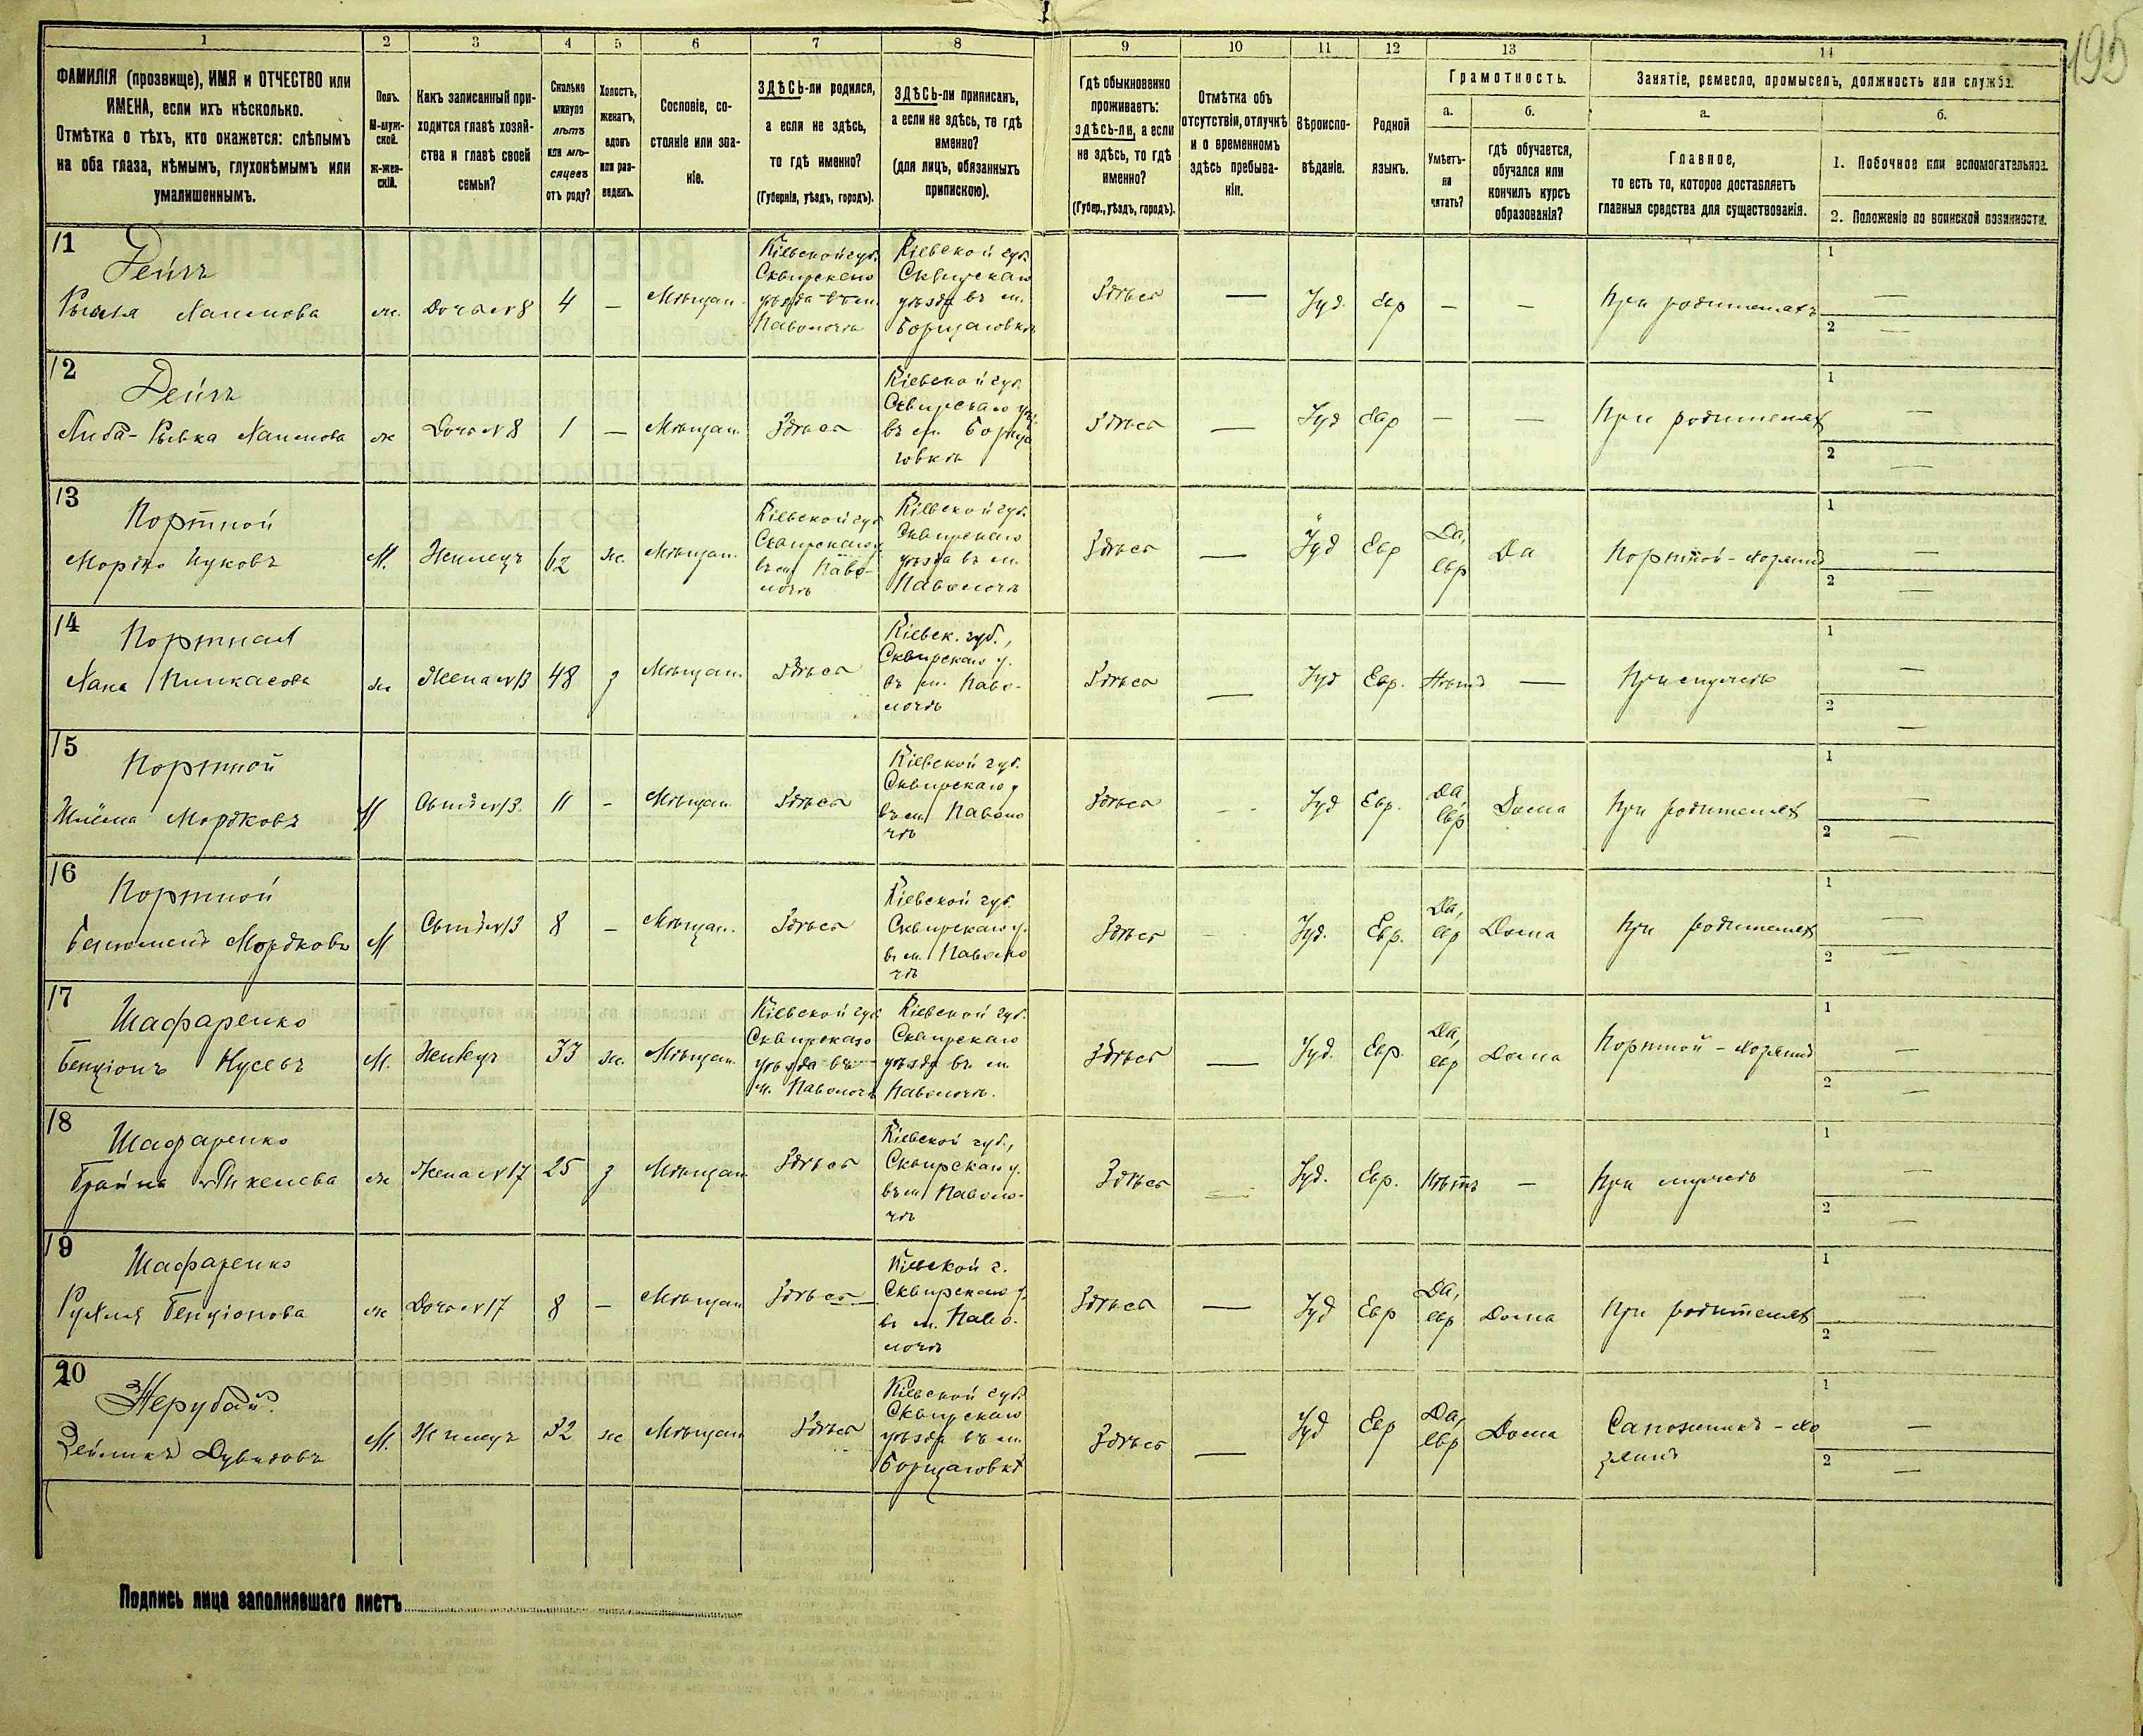 195
1 2 3 4 5 6 7 8 9 10 11 12 13 14
ФАМИЛІЯ (прозвище), ИМЯ и ОТЧЕСТВО или
ИМЕНА, если ихъ нѣсколько.
Отмѣтка о тѣхъ, кто окажется: слѣпымъ
на оба глаза, нѣмымъ, глухонѣмымъ или
умалишеннымъ.
Полъ.
М-муж-
ской.
ж-жен-
скій.
Какъ записанный при-
ходится главѣ хозяй-
ства и главѣ своей
семьи?
Сколько
минуло
лѣтъ
или мѣ-
сяцевъ
отъ роду?
Холостъ,
женатъ,
вдовъ
или раз-
веденъ.
Сословіе, со-
стояніе или зва-
ніе.
ЗДѢСЬ-ли родился,
а если не здѣсь,
то гдѣ именно?
(Губернія, уѣздъ, городъ).
ЗДѢСЬ-ли приписанъ,
а если не здѣсь, то гдѣ
именно?
(для лицъ, обязанныхъ
припискою).
Гдѣ обыкновенно
проживаетъ:
здѣсь-ли, а если
не здѣсь, то гдѣ
именно?
(Губер., уѣздъ, городъ).
Отмѣтка объ
отсутствіи, отлучкѣ
и о временномъ
здѣсь пребыва-
ніи.
Вѣроиспо-
вѣданіе.
Родной
языкъ.
Грамотность.
а.
Умѣетъ-
ли
читать?
б.
гдѣ обучается,
обучался или
кончилъ курсъ
образованія?
Занятіе, ремесло, промыселъ, должность или служба.
а.
Главное,
то есть то, которое доставляетъ
главныя средства для существованія.
б.
1. Побочное или вспомогательное.
2. Положеніе по воинской повинности.
11
Хаимова
ж. Дочь №8 4 — Мѣщан.
Кіевской губ.
Сквирскаго
уѣзда въ м.
Паволочѣ
Кіевской губ.
Сквирскаго
уѣзда въ м.
Борщаговкѣ
Здѣсь — Іуд. Евр — — При родителяхъ
1 —
2 —
12
Хаимова
ж Дочь №8 1 — Мѣщан. Здѣсь
Кіевской губ.
Сквирскаго уѣ
въ м. Борща
говкѣ
Здѣсь — Іуд Евр — — При родителях
1 —
2 —
13
Портной
Мордко
М. 62 ж. Мѣщан.
Кіевской губ
Сквирскаго у
въ м. Паво-
лочѣ
Кіевской губ.
Сквирскаго
уѣзда въ м.
Паволочѣ
Здѣсь — Іуд Евр Да, евр Да Портной - хозяинъ
1 —
2 —
14
Портная
Хана Пинкасова
ж Жена №13 48 з Мѣщан. Здѣсь
Кіевск. губ.,
Сквирскаго у.
въ м. Паво-
лочѣ
Здѣсь — Іуд Евр. Нѣтъ — При мужѣ
1 —
2 —
15
Портной
Шлёма Мордковъ
М Сынъ №13. 11 - Мѣщан. Здѣсь
Кіевской губ.
Сквирскаго у
въ м. Паволо
чѣ
Здѣсь - Іуд Евр. Да, евр Дома При родителях
1 —
2 —
16
Портной
Беньюминъ Мордковъ
М Сынъ №13 8 - Мѣщан. Здѣсь
Кіевской губ.
Сквирскаго у.
въ м. Паволо
чѣ
Здѣсь - Іуд. Евр. Да, евр Дома При родителях
1 —
2 —
17
Шафаренко
Бенціонъ Нусевъ
М. 33 ж. Мѣщан.
Кіевской губ
Сквирскаго
уѣзда въ
м. Паволочѣ
Кіевской губ.
Сквирскаго
уѣзда въ м.
Паволочѣ.
Здѣсь — Іуд. Евр. Да, евр Дома Портной - хозяинъ
1 —
2 —
18
Шафаренко
Брайна
ж Жена №17 25 з Мѣщан Здѣсь
Кіевской губ.,
Сквирскаго у.
въ м. Паволо-
чѣ
Здѣсь — Іуд. Евр. Нѣтъ — При мужѣ
1 —
2 —
19
Шафаренко
Рухля Бенціонова
ж Дочь №17 8 — Мѣщан Здѣсь
Кіевской г.
Сквирскаго у.
въ м. Паво-
лочѣ
Здѣсь — Іуд Евр Да, евр Дома При родителях
1 —
2 —
20
Нерубай
Зейликъ Дувидовъ
М. 32 ж Мѣщан Здѣсь
Кіевской губ.
Сквирскаго
уѣзда въ м.
Борщаговкѣ
Здѣсь — Іуд Евр Да, евр Дома Сапожникъ - хо
зяинъ
1 —
2 —
Подпись лица заполнявшаго листъ